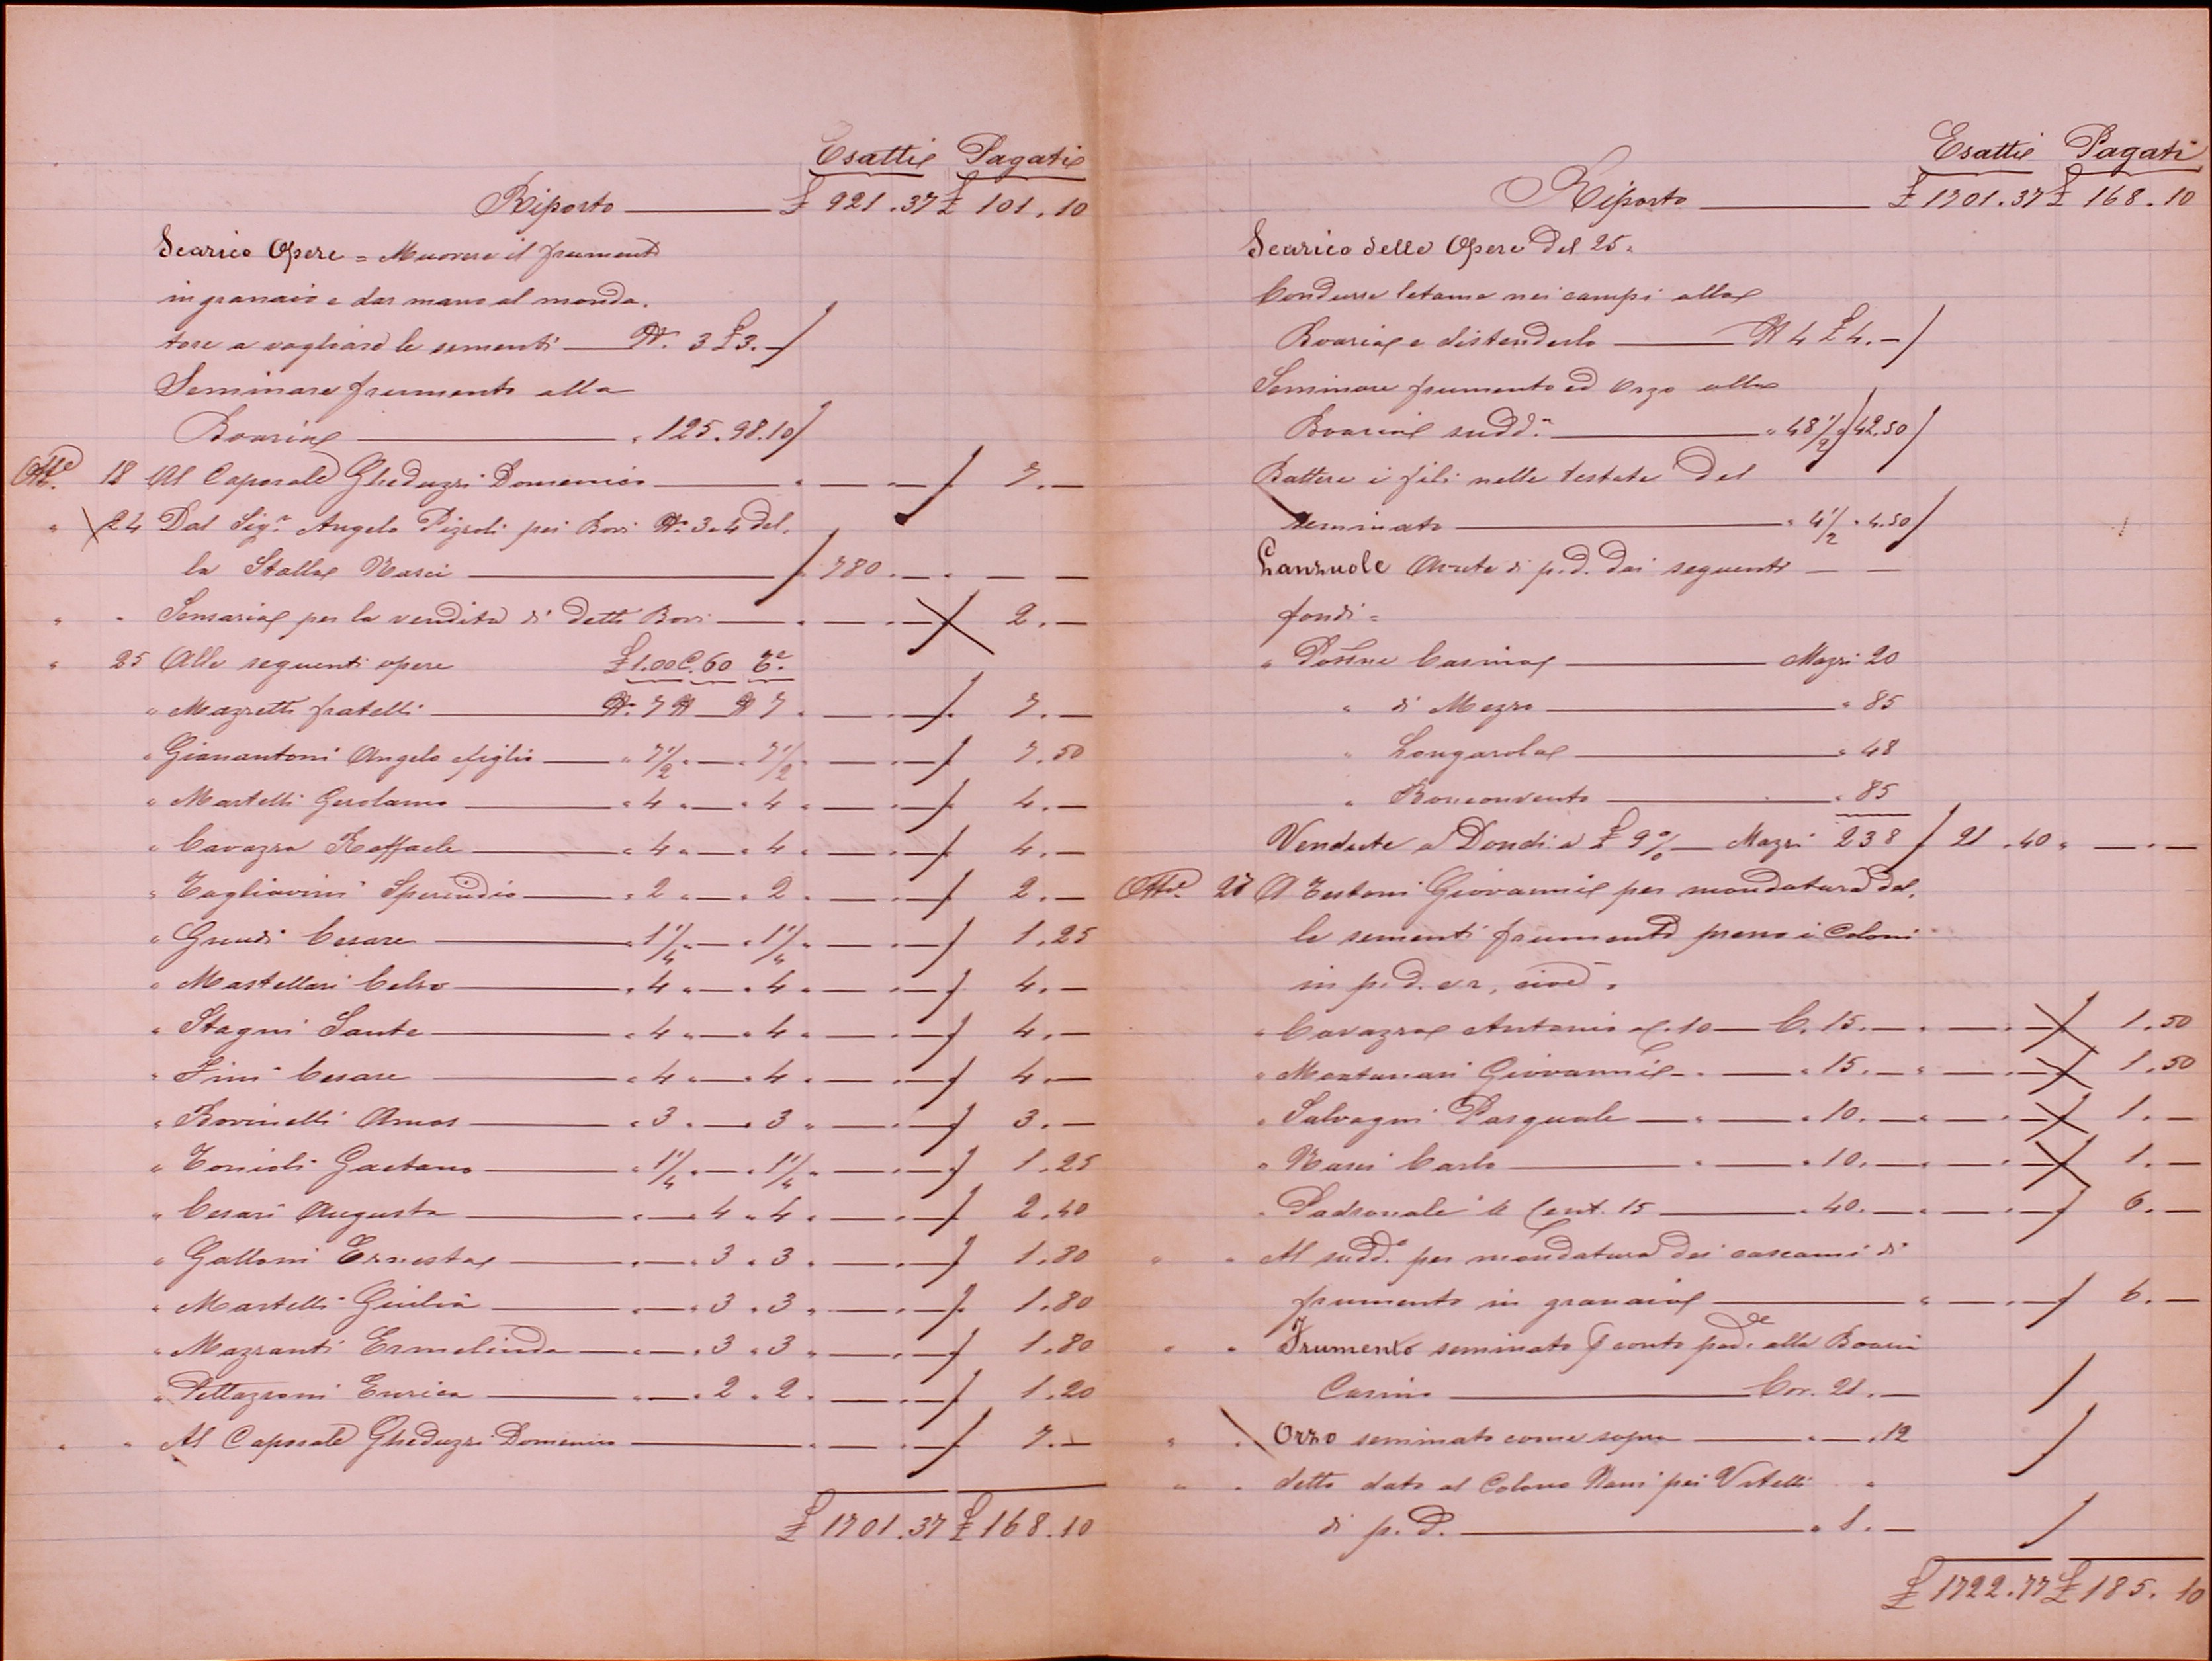 Esatti Pagati
Riporto £ 921.37 £ 101.10
Scarico Opere = Muovere il frumento
in granaio e dar mano al monda.
tore a vagliare le sementi N. 3 £ 3.-
Seminare frumento alla
Boaria " 125. 98.10
Ott.e 18 Al Caporale Gheduzzi Domenico " — " — 7.—
" 24 Dal Sig.r Angelo Pizzoli pei Bovi N. 3 e 4 del.
la Stalla Nasci 780.— " — —
" " Senseria per la vendita di detti Bovi " — " — 2.—
" 25 Alle seguenti opere £ 1.00 C. 60 T.e
" Mazzetti fratelli N. 7 N — N 7 " — " — 7.—
" Gianantoni Angelo e figlio " 7 1/2 " — " 7 1/2 " — " — 7.50
" Martelli Gerolamo " 4 " — " 4 " — " — 4.—
" Cavazza Raffaele " 4 " — " 4 " — " — 4.—
" Tagliavini Sperindio " 2 " — " 2 " — " — 2.—
" Grandi Cesare " 1 1/4 " — " 1 1/4 " — " — 1.25
" Mastellari Celso " 4 " — " 4 " — " — 4.—
" Stagni Sante " 4 " — " 4 " — " — 4.—
" Fini Cesare " 4 " — " 4 " — " — 4.—
" Bovinelli Amos " 3 " — " 3 " — " — 3.—
" Tonioli Gaetano " 1 1/4 " — " 1 1/4 " — " — 1.25
" Cesari Augusta " — " 4 " 4 " — " — 2.40
" Galloni Ernesta " — " 3 " 3 " — " — 1.80
" Martelli Giulia " — " 3 " 3 " — " — 1.80
" Mazzanti Ermelinda " — " 3 " 3 " — " — 1.80
" Pettazzoni Enrica " — " 2 " 2 " — " — 1.20
" " Al Caporale Gheduzzi Domenico " — " — 7.—
£ 1701.37 £ 168.10
Esatti Pagati
Riporto £ 1701.37 £ 168.10
Scarico delle Opere del 25.
Condurre letame nei campi alla
Boaria e distenderlo N 4 £ 4.-
Seminare frumento ed orzo alla
Boaria sudd.a " 48 1/2 " 42.50
Battere i fili nelle testate del
seminato " 4 1/2 " 4.50
Canzuole Avute di p.d. dai seguenti — —
fondi =
" Casina Mazzi 20
" di Mezzo " 85
" Longarola " 48
" Bonconvento " 85
Vendute a Dondi a £ 9 % Mazzi 238 21.40 " — " —
Ott.e 27 A Testoni Giovanni per mondatura del.
le sementi frumento presso i Coloni
in p.d. e r, cioè.
" Cavazza Antonio C. 10 — C. 15.— " — " — 1.50
" Montanari Giovanni " — " 15.— " — " — 1.50
" Salvagni Pasquale — " — " 10.— " — " — 1.—
" Nasci Carlo " — " 10.— " — " — 1.—
" Padronale a Cent. 15 " 40.— " — " — 6.—
" " Al sudd.o per mondatura dei cascami di
frumento in granaio " — " — 6.—
" " Frumento seminato p conto pad.le alla Boaria
Casino Cor. 21.—
" " Orzo seminato come sopra " — " 12
" " detto dato al Colono Nasci pei Vitelli "
di p.d. " 1.—
£ 1722.77 £ 185.10